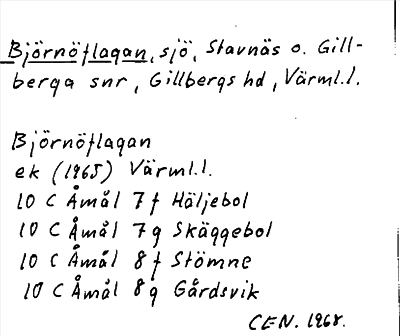 Björnöflagan, sjö, Stavnäs o. Gill-
berga snr, Gillbergs hd, Värml.l.
Björnöflagan
ek (1965) Värml.l.
10 C Åmål 7f Häljebol
10 C Åmål 7g Skäggebol
10 C Åmål 8f Stömne
10 C Åmål 8g Gårdsvik
CEN. 1968.